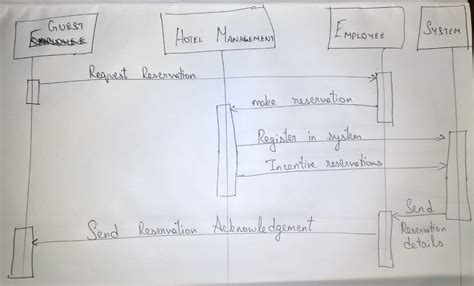 GUEST
EMPLOYEE
HOTEL MANAGEMENT
EMPLOYEE
SYSTEM
Request Reservation
make reservation
Register in system
Incentive reservations
Send
Reservation
details
Send Reservation Acknowledgement